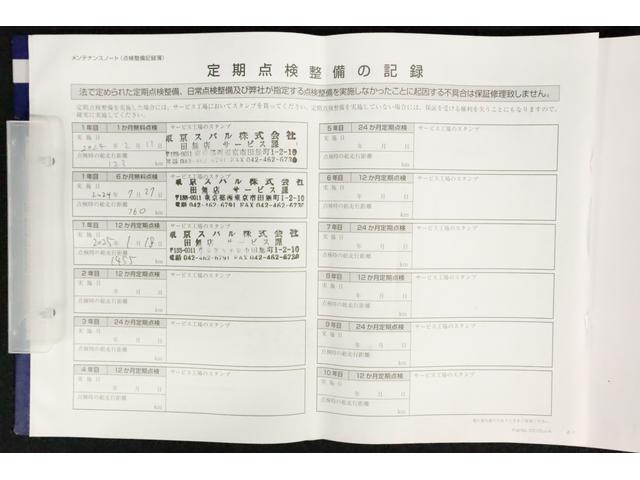 メンテナンスノート(点検整備記録簿)
定期点検整備の記録
法で定められた定期点検整備、日常点検整備及び弊社が指定する点検整備を実施しなかったことに起因する不具合は保証修理致しません。
定期点検整備を実施した場合には、サービス工場においてスタンプを貰ってください。定期点検整備を実施していない場合には、保証を受ける権利を失うことにもなりますので、
確実に実施してください。
1年目 1か月無料点検 サービス工場のスタンプ
実施日
2024年2月11日
点検時の総走行距離
123 km
東京スバル株式会社
田無店 サービス課
1年目 6か月無料点検 サービス工場のスタンプ
実施日
2024年7月27日
点検時の総走行距離
760 km
東京スバル株式会社
田無店 サービス課
〒188-0011 東京都西東京市田無町1-2-10
電話 042-462-6791 FAX 042-462-6730
1年目 12か月定期点検 サービス工場のスタンプ
実施日
2025年1月18日
点検時の総走行距離
1455 km
東京スバル株式会社
田無店 サービス課
2年目 12か月定期点検 サービス工場のスタンプ
実施日
年 月 日
点検時の総走行距離
km
3年目 24か月定期点検 サービス工場のスタンプ
実施日
年 月 日
点検時の総走行距離
km
4年目 12か月定期点検 サービス工場のスタンプ
実施日
年 月 日
点検時の総走行距離
km
5年目 24か月定期点検 サービス工場のスタンプ
実施日
年 月 日
点検時の総走行距離
km
6年目 12か月定期点検 サービス工場のスタンプ
実施日
年 月 日
点検時の総走行距離
km
7年目 24か月定期点検 サービス工場のスタンプ
実施日
年 月 日
点検時の総走行距離
km
8年目 12か月定期点検 サービス工場のスタンプ
実施日
年 月 日
点検時の総走行距離
km
9年目 24か月定期点検 サービス工場のスタンプ
実施日
年 月 日
点検時の総走行距離
km
10年目 12か月定期点検 サービス工場のスタンプ
実施日
年 月 日
点検時の総走行距離
km